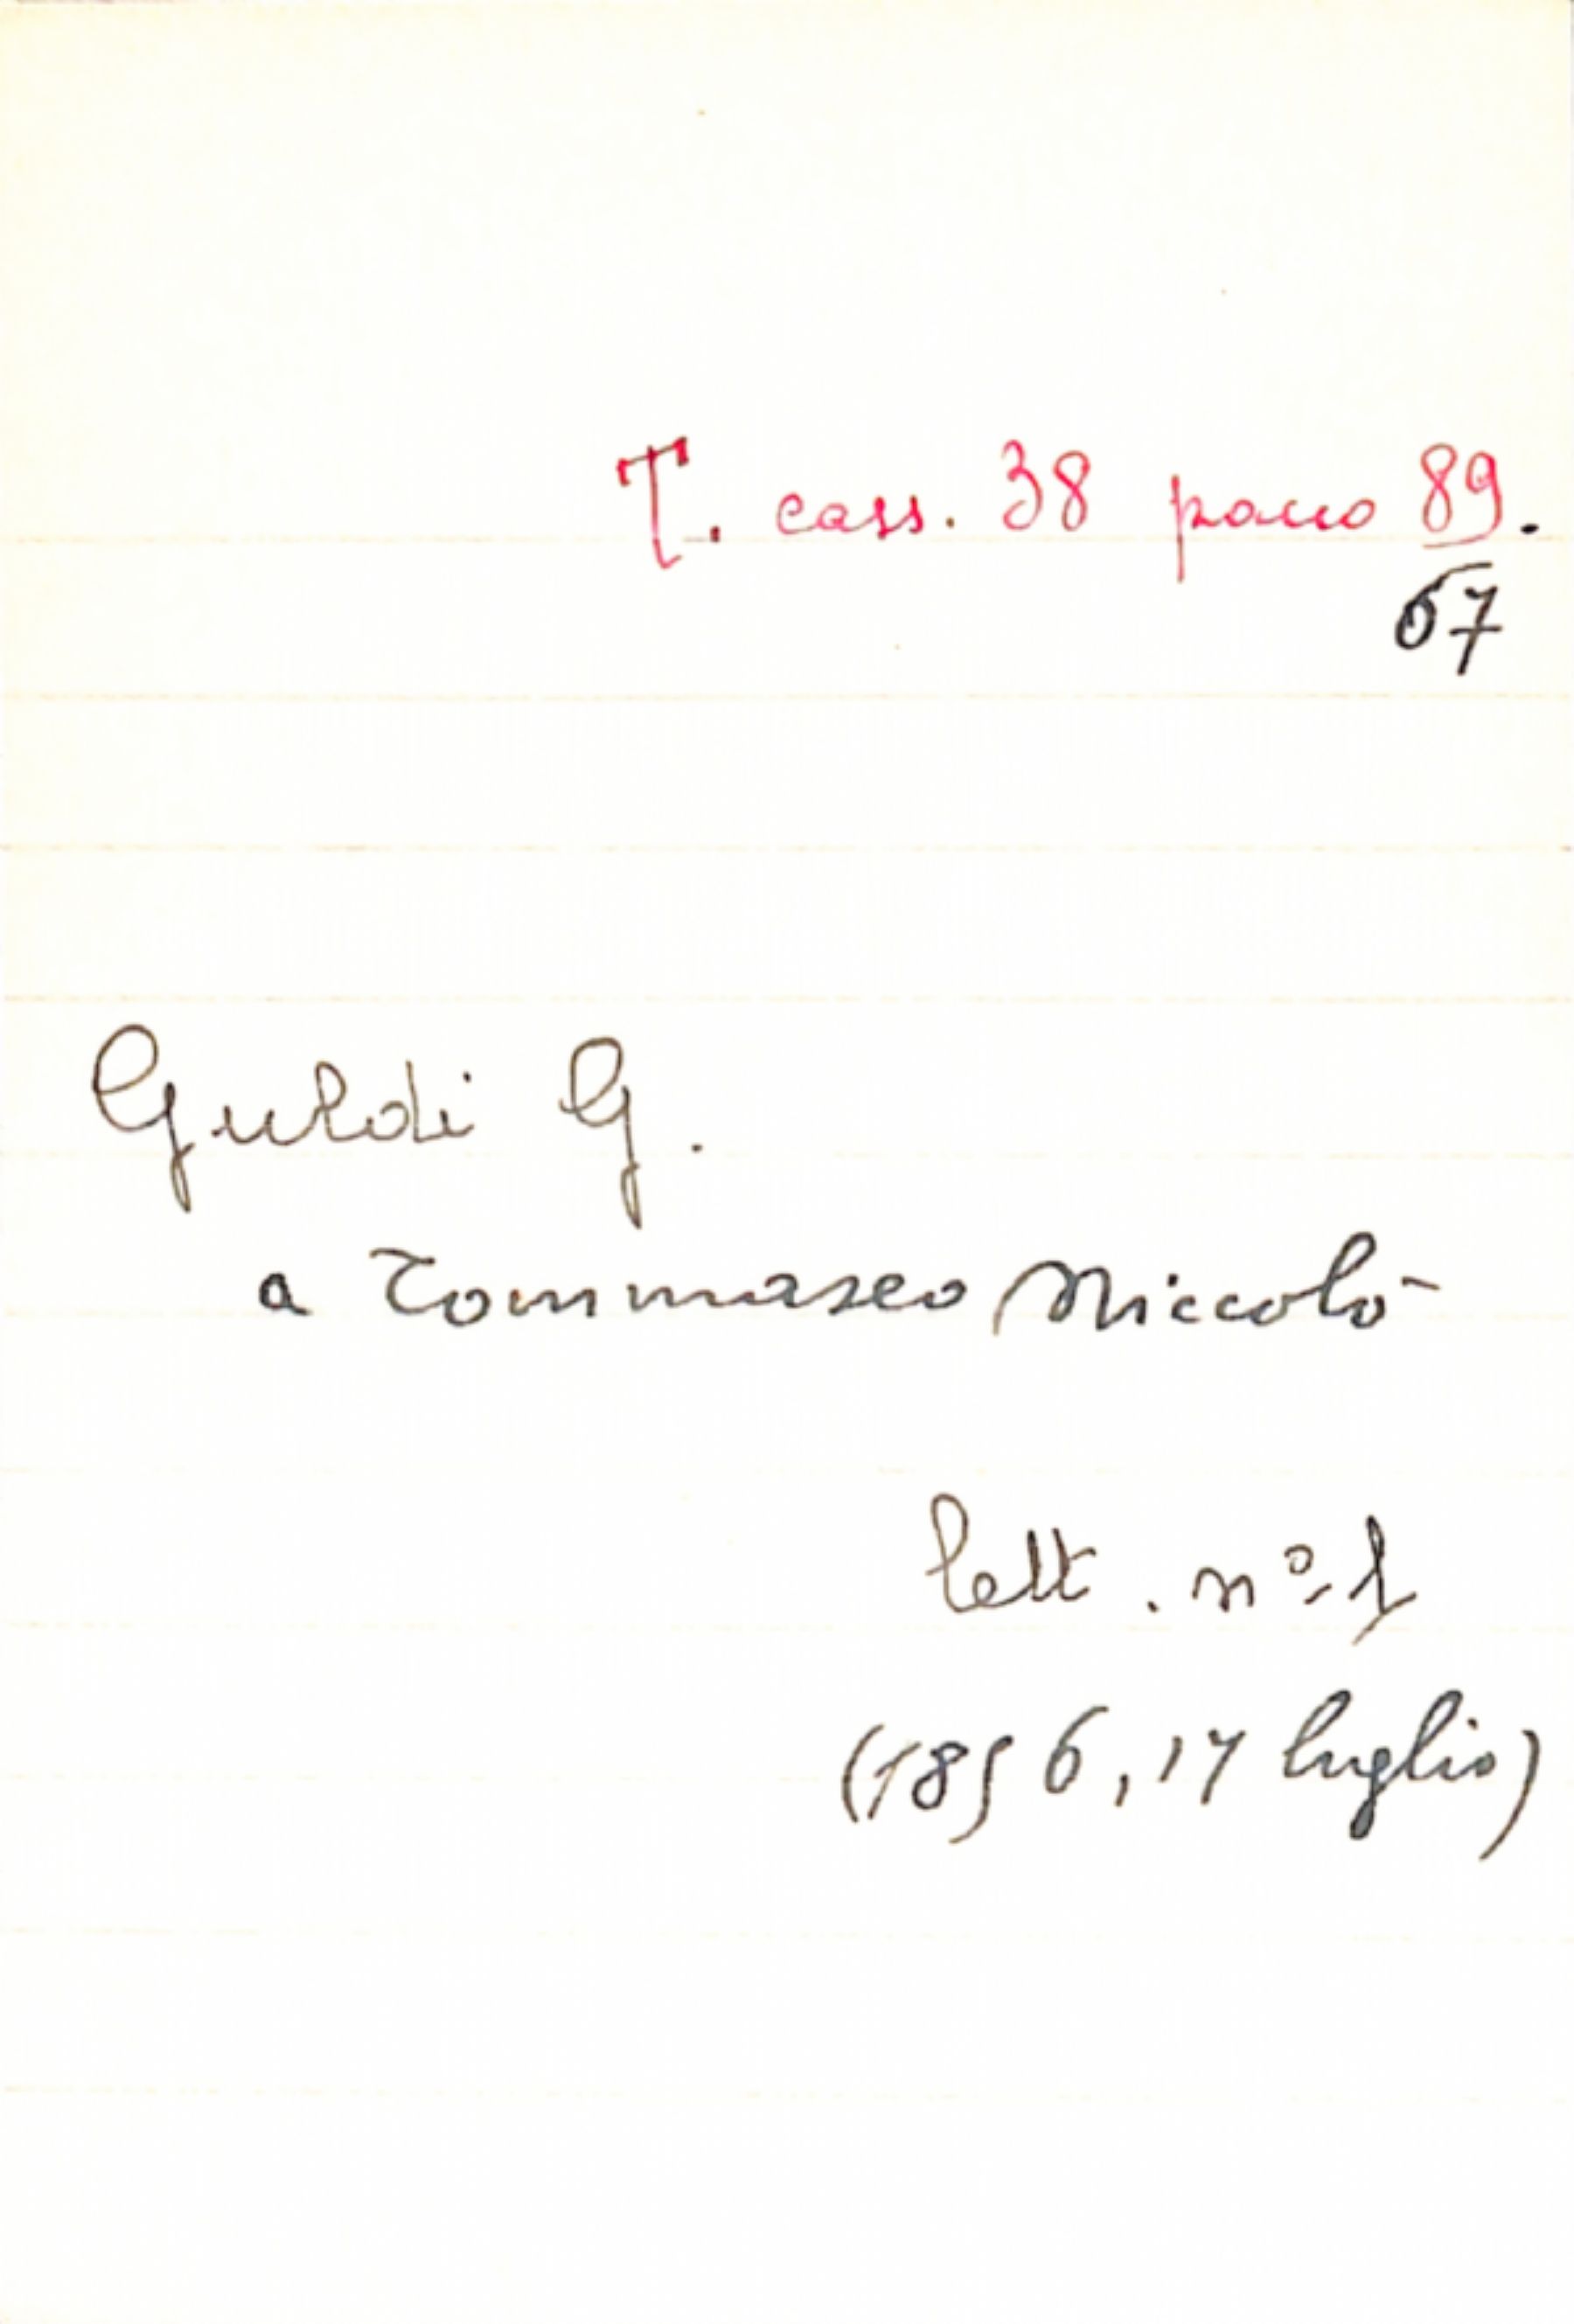 T. cass. 38 pacco 89.
67
Guldi G.
a Tommaseo Niccolò
lett. nº 1
(1856, 17 luglio)